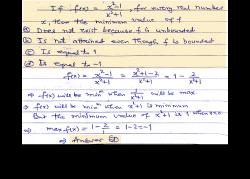 If f(x) = x²-1/x²+1, for every real number
x, then the minimum value of f
(a) Does not exist because f is unbounded
(b) Is not attained even though f is bounded
(c) Is equal to 1
(d) Is equal to -1
f(x) = x²-1/x²+1 = x²+1-2/x²+1 = 1 - 2/x²+1
⇒ f(x) will be min^m when 2/x²+1 will be max.
⇒ f(x) will be min^m when x²+1 is minimum
But the minimum value of x²+1 is 1 when x=0
⇒ f(x) = 1-2/1 = 1-2 = -1
⇒ Answer (D)